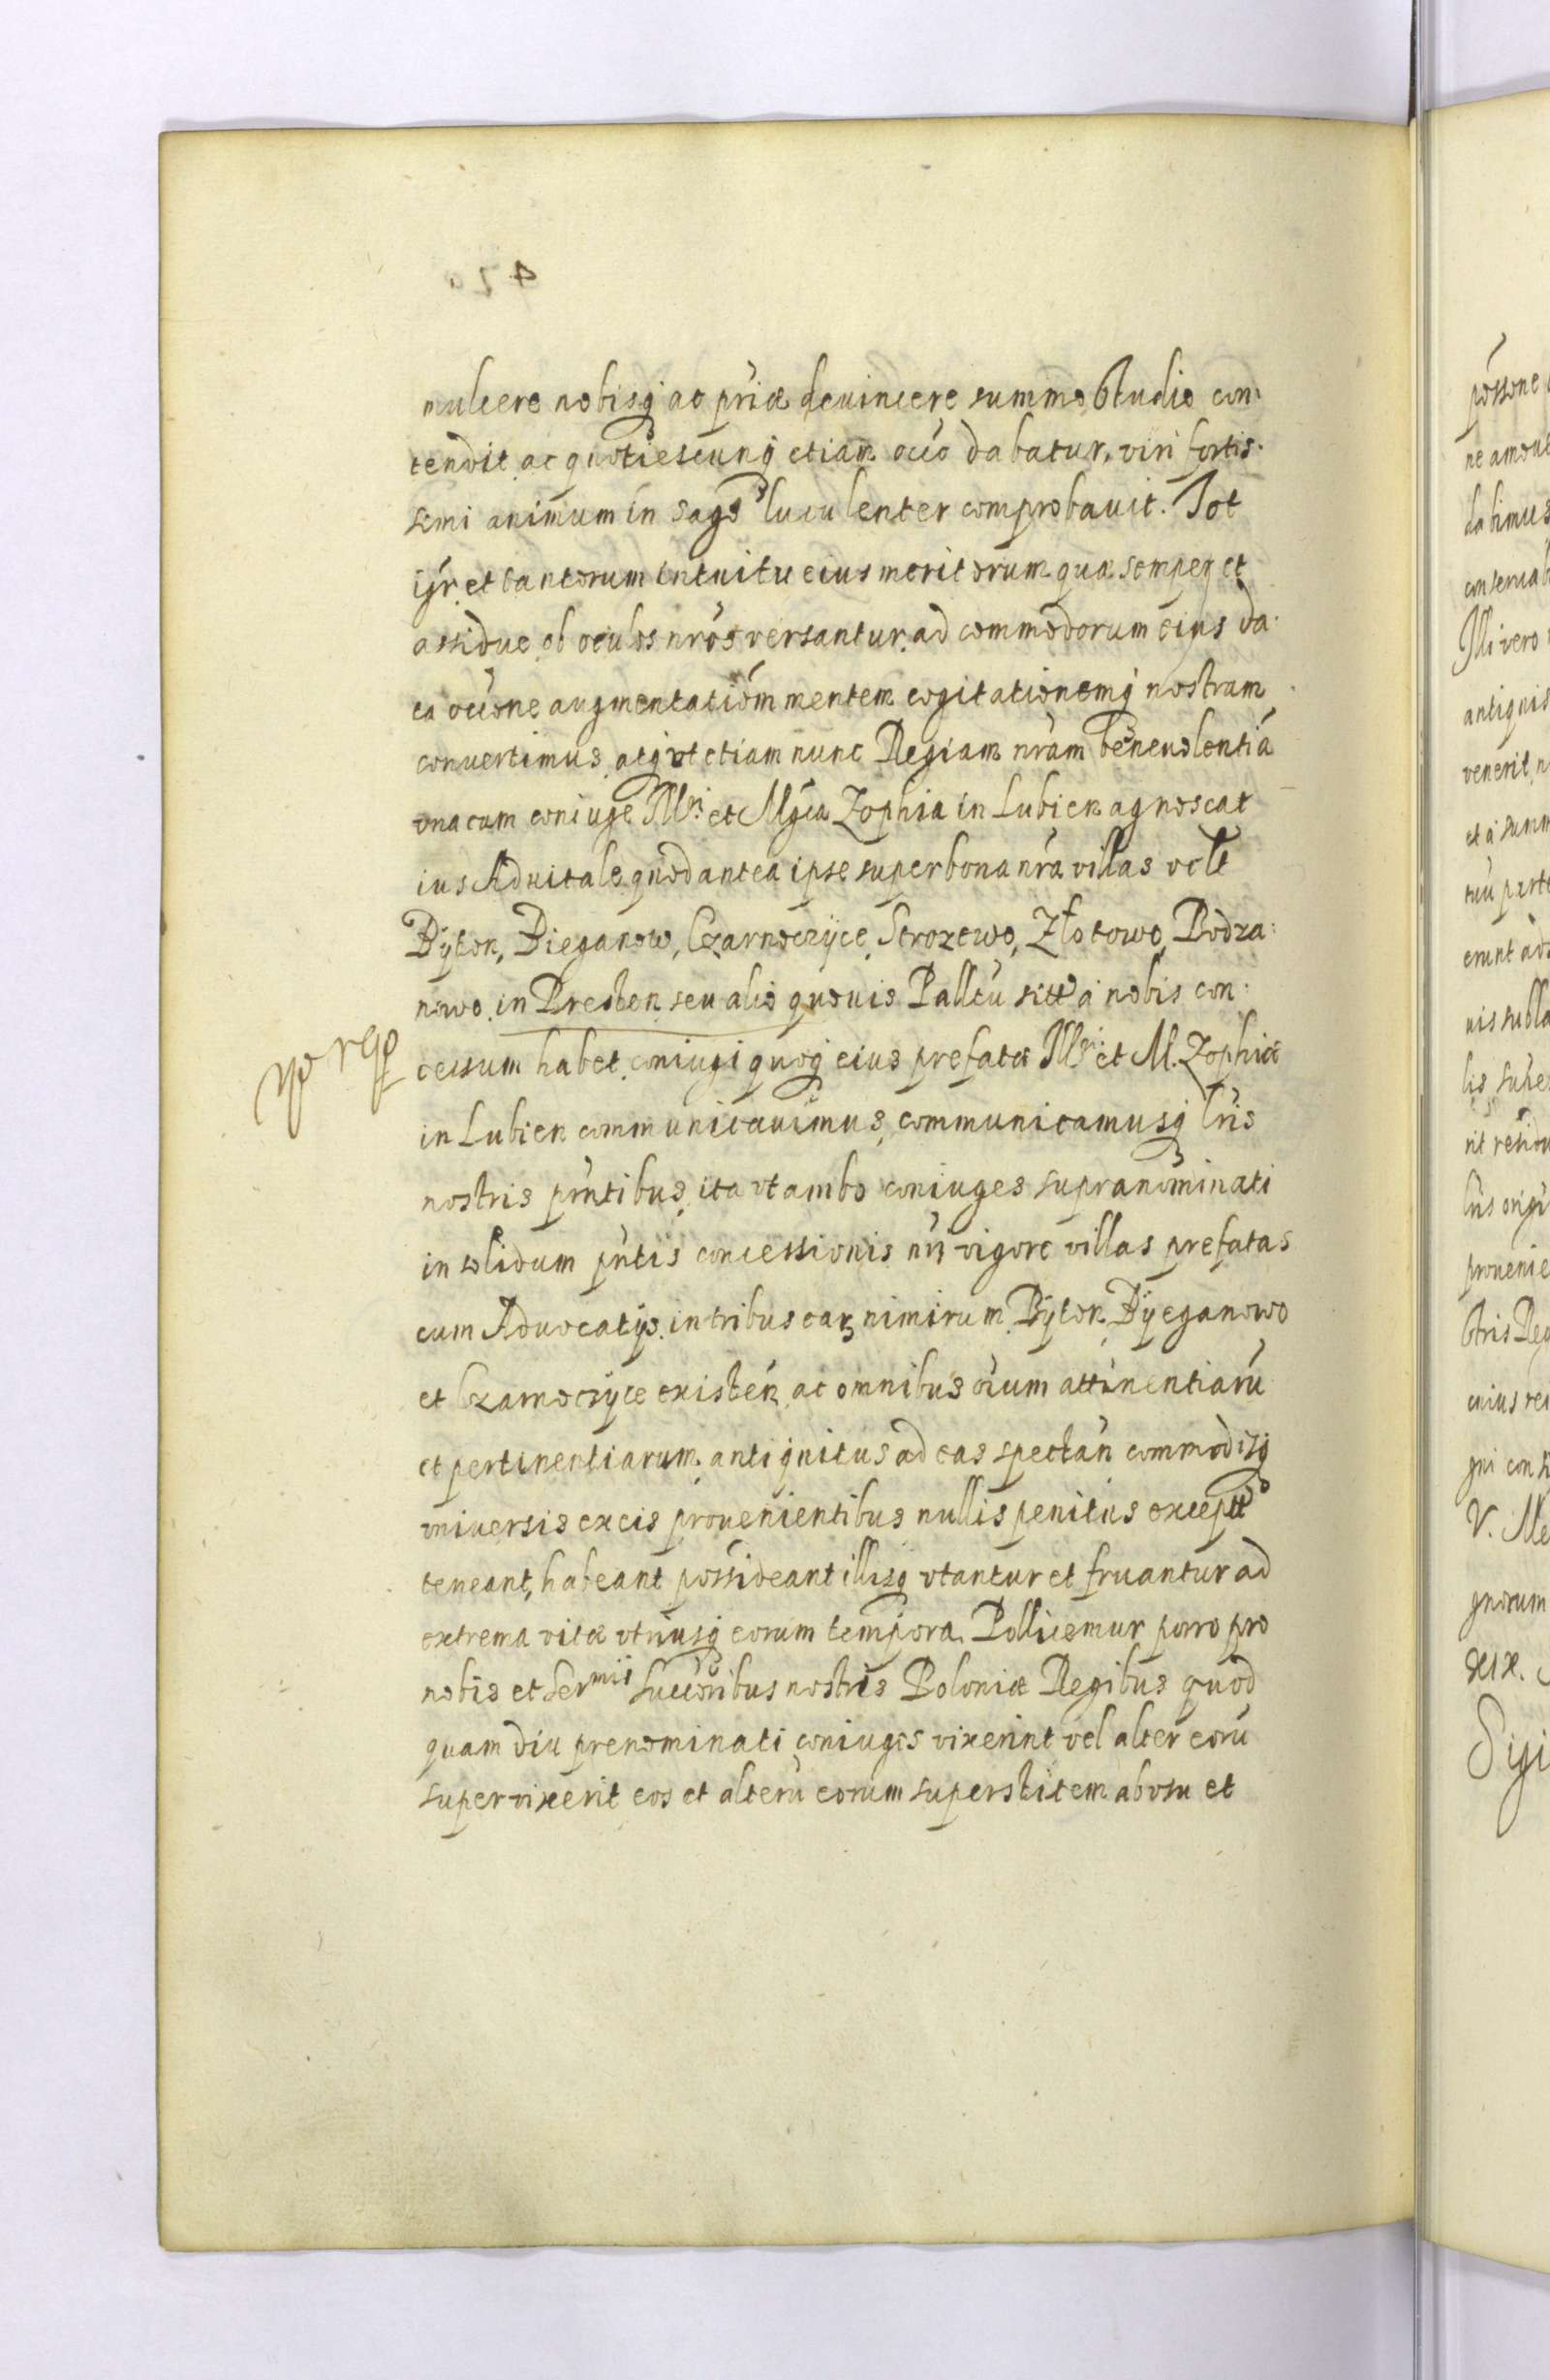 420
mulcere nobisq ac priæ devincere summo studio con:
tendit ac quotiescunq etiam occo dabatur, viri fortis:
simi animum in sago luculenter comprobauit. Tot
igr et tantorum intuitu eius meritorum quæ semper et
assidue ob oculos nros versantur, ad commodorum eius da:
ta occone augmentatiom mentem cogitationemq nostram
conuertimus, atq vt etiam nunc Regiam nram beneuolentiã
vna cum coniuge Illri et Mgca Zophia in Lubien agnoscat
ius Aduitale quod antea ipse super bona nra villas vclt
Byton, Bieganow, Czarnoczyce, Strozewo, Złotowo, Bodza:
nowo, in Bresten seu alio quouis Palltu sitt à nobis con:
cessum habet, coniugi quoq eius prefatæ Illri et M. Zophiæ
in Lubien communicauimus, communicamusq lris
nostris pntibus, ita vt ambo coniuges supranominati
in solidum pntis concessionis nræ vigore villas prefatas
cum Aduocatijs in tribus ear, nimirum Byton, Byeganowo
et Czarnoczyce existen, ac omnibus oium attinentiarũ
et pertinentiarum antiquitus ad eas spectan commodisq
vniuersis ex eis prouenientibus nullis penitus exceptt
teneant, habeant possideant illisq vtantur et fruantur ad
extrema vitæ vtriusq eorum tempora. Pollicemur porro pro
nobis et Sermis Succoribus nostris Poloniæ Regibus quod
quam diu prenominati coniuges vixerint vel alter eorũ
superuixerit eos et alterũ eorum superstitem ab vsu et